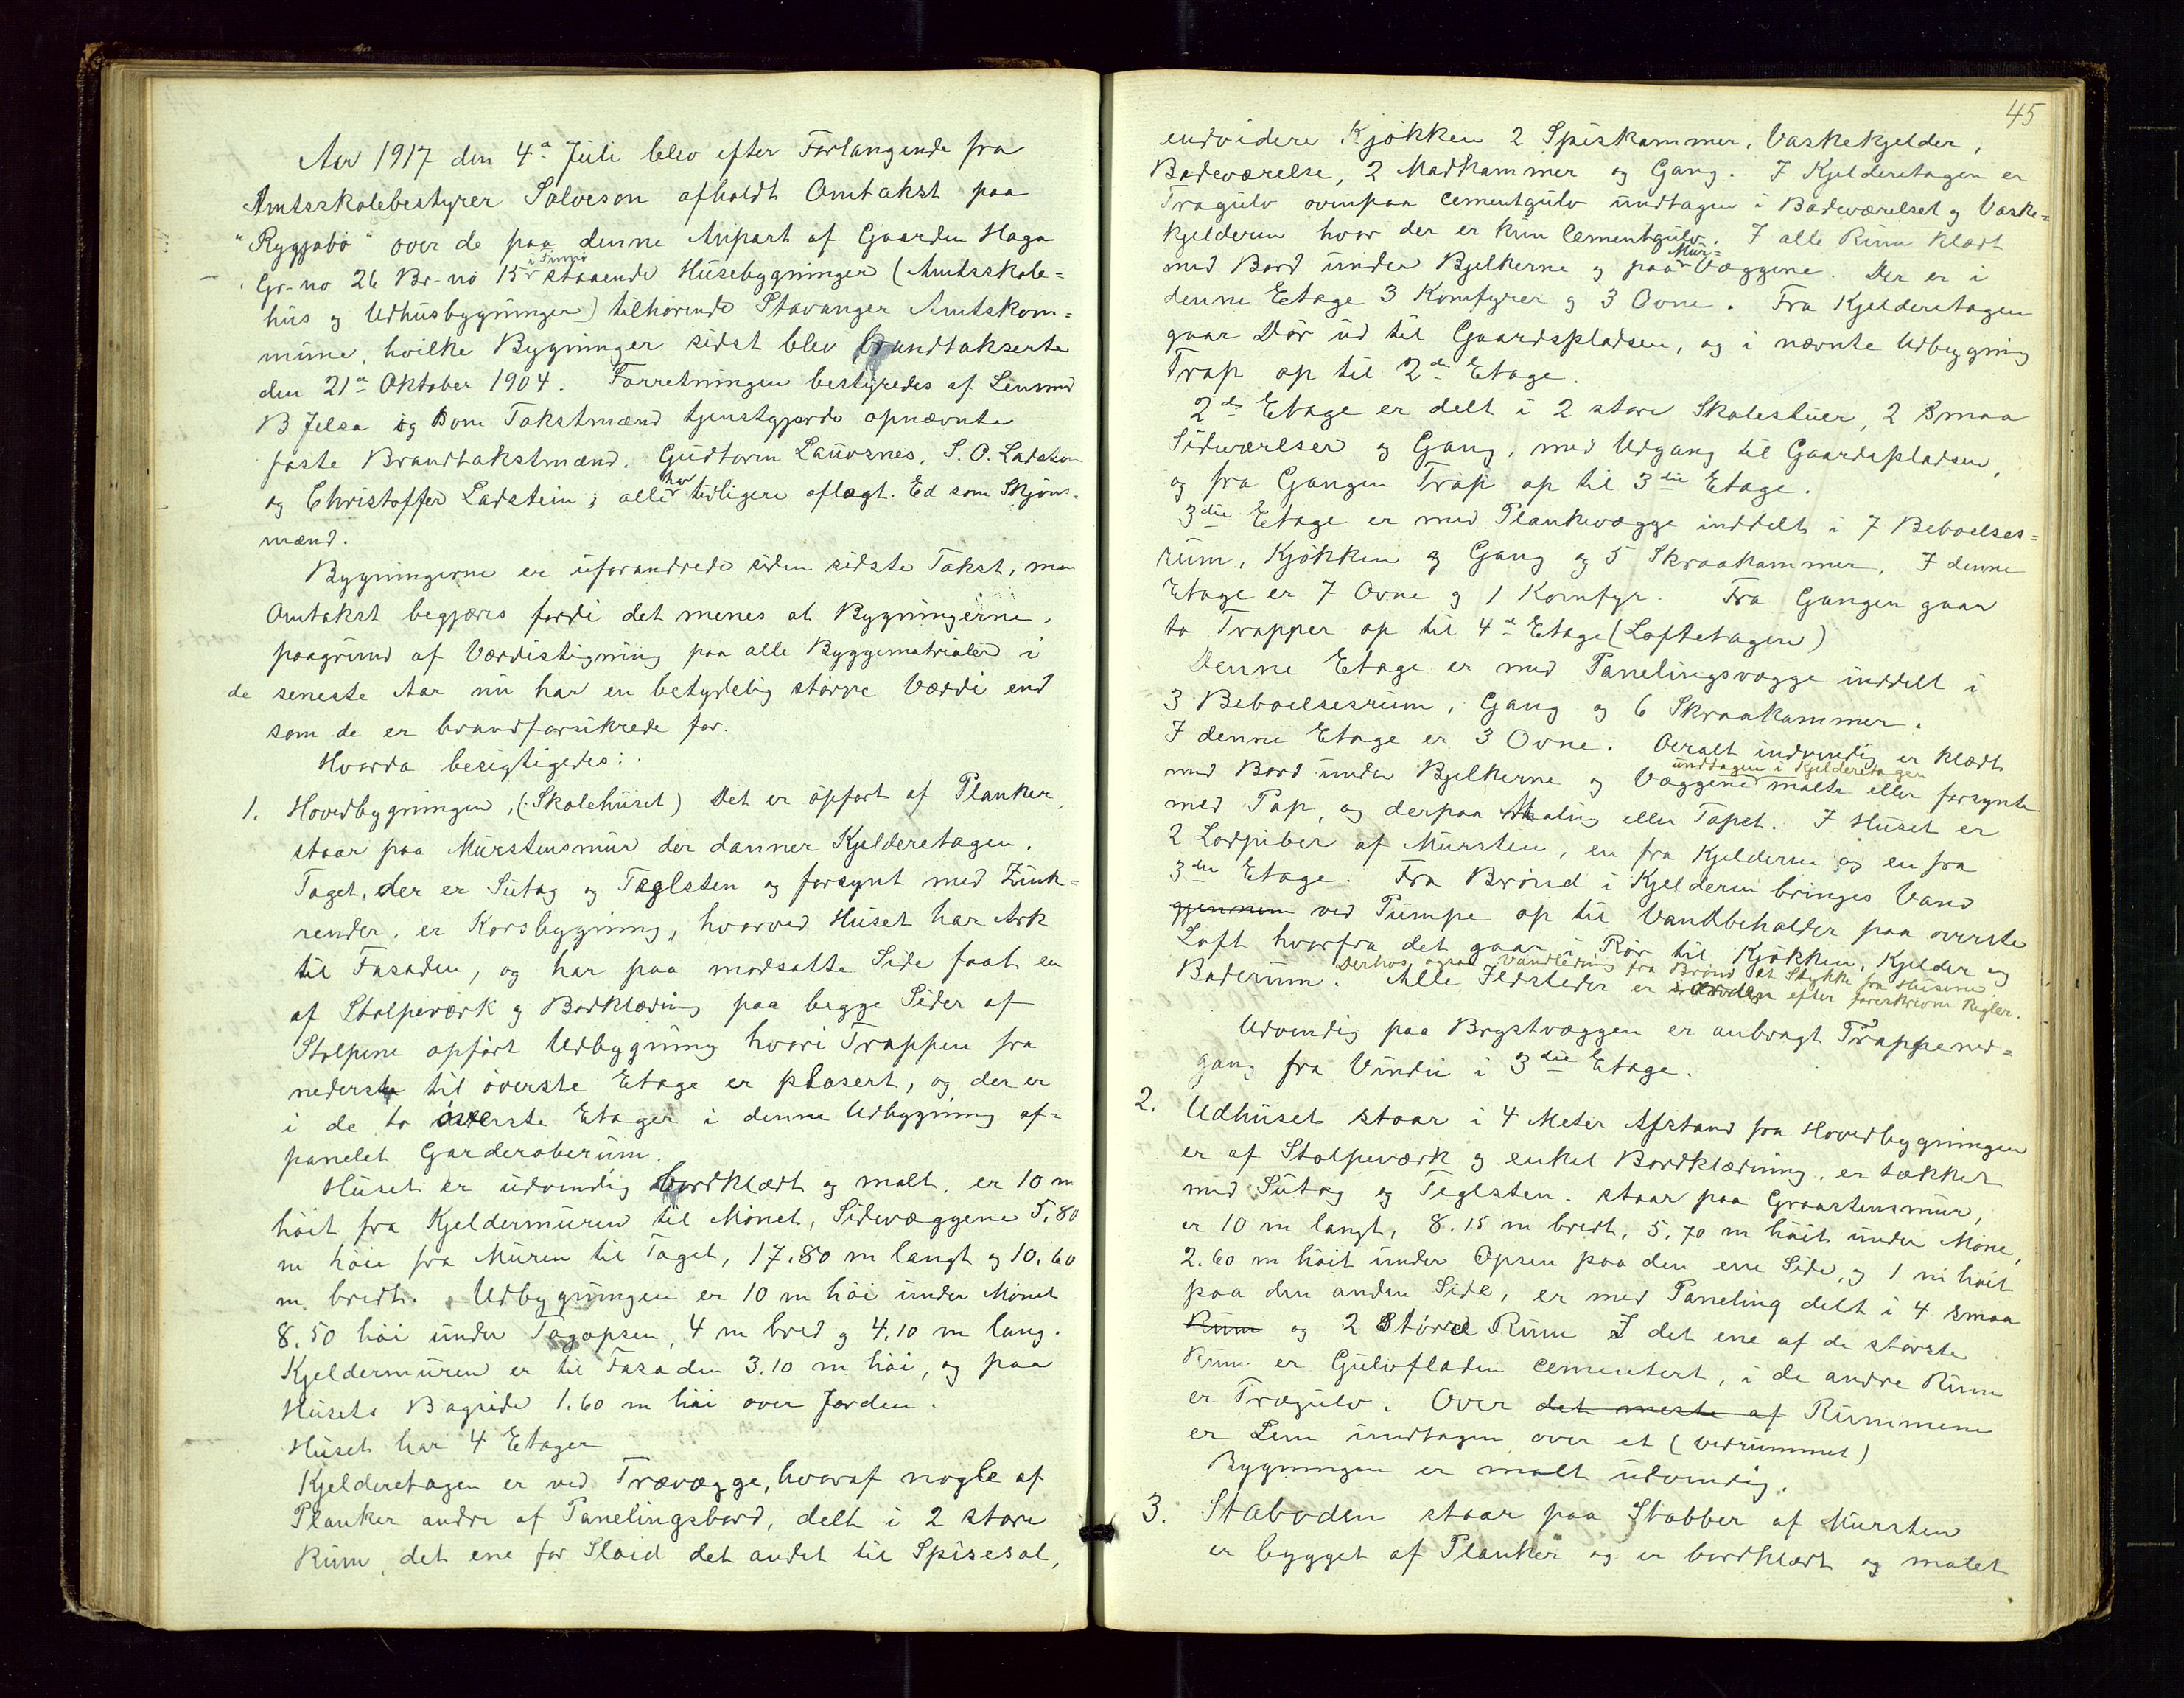 Aar 1917 den 4de Juli blev efter Forlangende fra
Amtsskolebestyrer Salveson afholdt Omtakst paa
"Rygjabø" over de paa denne Anpart af Gaarden Haga
Gr-no 26 Br-no 15 i Finnø staaende Husebygninger (Amtsskole=
hus og Udhusbygninger) tilhørende Stavanger Amtskom=
mune, hvilke Bygninger sidst blev brandtakserte
den 21de Oktober 1904. Forretningen bestyredes af Lensmd
B Jelsa og som Takstmænd tjenstgjorde opnævnte
faste Brandtakstmænd. Gudtorm Lauvsnes, S. O. Ladstein
og Christoffer Ladstein; alle har tidligere aflagt. Ed som Skjøns-
mænd.
Bygningerne er uforandrede siden sidste Takst, men
Omtakst begjæres fordi det menes at Bygningerne,
paagrund af Værdistigning paa alle Byggematrialer i
de seneste Aar nu har en betydelig større Værdi end
som de er brandforsikrede for.
Hvorda besigtigedes:
1. Hovedbygningen, (Skolehuset) Det er opført af Planker,
staar paa Murstensmur der danner Kjelderetagen.
Taget, der er Sutag og Taglsten og forsynt med Zink=
render, er Korsbygning, hvorved Huset har Ark
til Fasaden, og har paa modsatte Side faat en
af Stolpeværk og Bordklædning paa begge Sider af
Stolpene opført Udbygning hvori Trappen fra
nederste til øverste Etage er plasert, og der er
i de to øverste Etager i denne Udbygning af=
panelet Garderoberum.
Huset er udvendig bordklædt og malt, er 10 m
høit fra Kjeldermuren til Mønet, Sidevæggene 5,80
m høie fra Muren til Taget, 17.80 m langt og 10,60
m bredt. Udbygningen er 10 m høi under Mønet
8,50 høi under Tagopsen, 4 m bred og 4,10 m lang.
Kjeldermuren er til Fasaden 3.10 m høi, og paa
Husets Bagside 1.60 m høi over Jorden.
Huset har 4 Etager
Kjelderetagen er ved Trævægge, hvoraf nogle af
Planker andre af Panelingsbord, delt i 2 store
Rum, det ene for Sløid det andet til Spisesal,
45
endvidere Kjøkken 2 Spiskammer, Vaskekjelder,
Badeværelse, 2 Madkammer og Gang. I Kjelderetagen er
Trægulv ovenpaa Cementgulv undtagen i Badeværelset og Vaske=
kjelderen hvor der er kun Cementgulv. I alle Rum klædt
med Bord under Bjelkerne og paa Mur= Væggene. Der er i
denne Etage 3 Komfyrer og 3 Ovne. Fra Kjelderetagen
gaar Dør ud til Gaardspladsen, og i nævnte Udbygning
Trap op til 2den Etage.
2den Etage er delt i 2 store Skolestuer, 2 smaa
Sideværelser og Gang, med Udgang til Gaardspladsen,
og fra Gangen Trap op til 3die Etage.
3die Etage er med Plankevægge inddelt i 7 Beboelses=
rum, Kjøkken og Gang og 5 Skraakammer. I denne
Etage er 7 Ovne og 1 Komfyr. Fra Gangen gaar
to Trapper op til 4de Etage (Loftetagen)
Denne Etage er med Panelingsvægge inddelt i
3 Beboelsesrum, Gang og 6 Skraakammer.
I denne Etage er 3 Ovne. Overalt indvendig er klædt
med Bord under Bjelkerne og Væggene undtagen i Kjelderetagen malte eller forsynte
med Pap, og derpaa Maling eller Tapet. I Huset er
2 Lodpiber af Mursten, en fra Kjelderen og en fra
3die Etage. Fra Brønd i Kjelderen bringes Vand
gjennem ved Pumpe op til Vandbeholder paa øverste
Loft hvorfra det gaar i Rør til Kjøkken, Kjelder og
Derhos ogsaa Vandledning fra Brønd et Stykke fra Husene
Baderum. Alle Ildsteder er efter foreskrevne Regler.
Udvendig paa Brystvæggen er anbragt Trappened=
gang fra Vindu i 3die Etage.
2. Udhuset staar i 4 Meter Afstand fra Hovedbygningen
er af Stolpeværk og enkel Bordklædning, er tækket
med Sutag og Teglsten. staar paa Graastensmur,
er 10 m langt, 8.15 m bredt, 5.70 m høit under Møne,
2.60 m høit under Opsen paa den ene Side, og 1 m høit
paa den anden Side, er med Paneling delt i 4 smaa
Rum og 2 større Rum I det ene af de største
Rum er Gulvfladen cementert, i de andre Rum
er Trægulv. Over det meste af Rummene
er Lem undtagen over et (Vedrummet)
Bygningen er malt udvendig.
3. Staboden staar paa Stabber af Mursten
er bygget af Planker og er bordklædt og malet